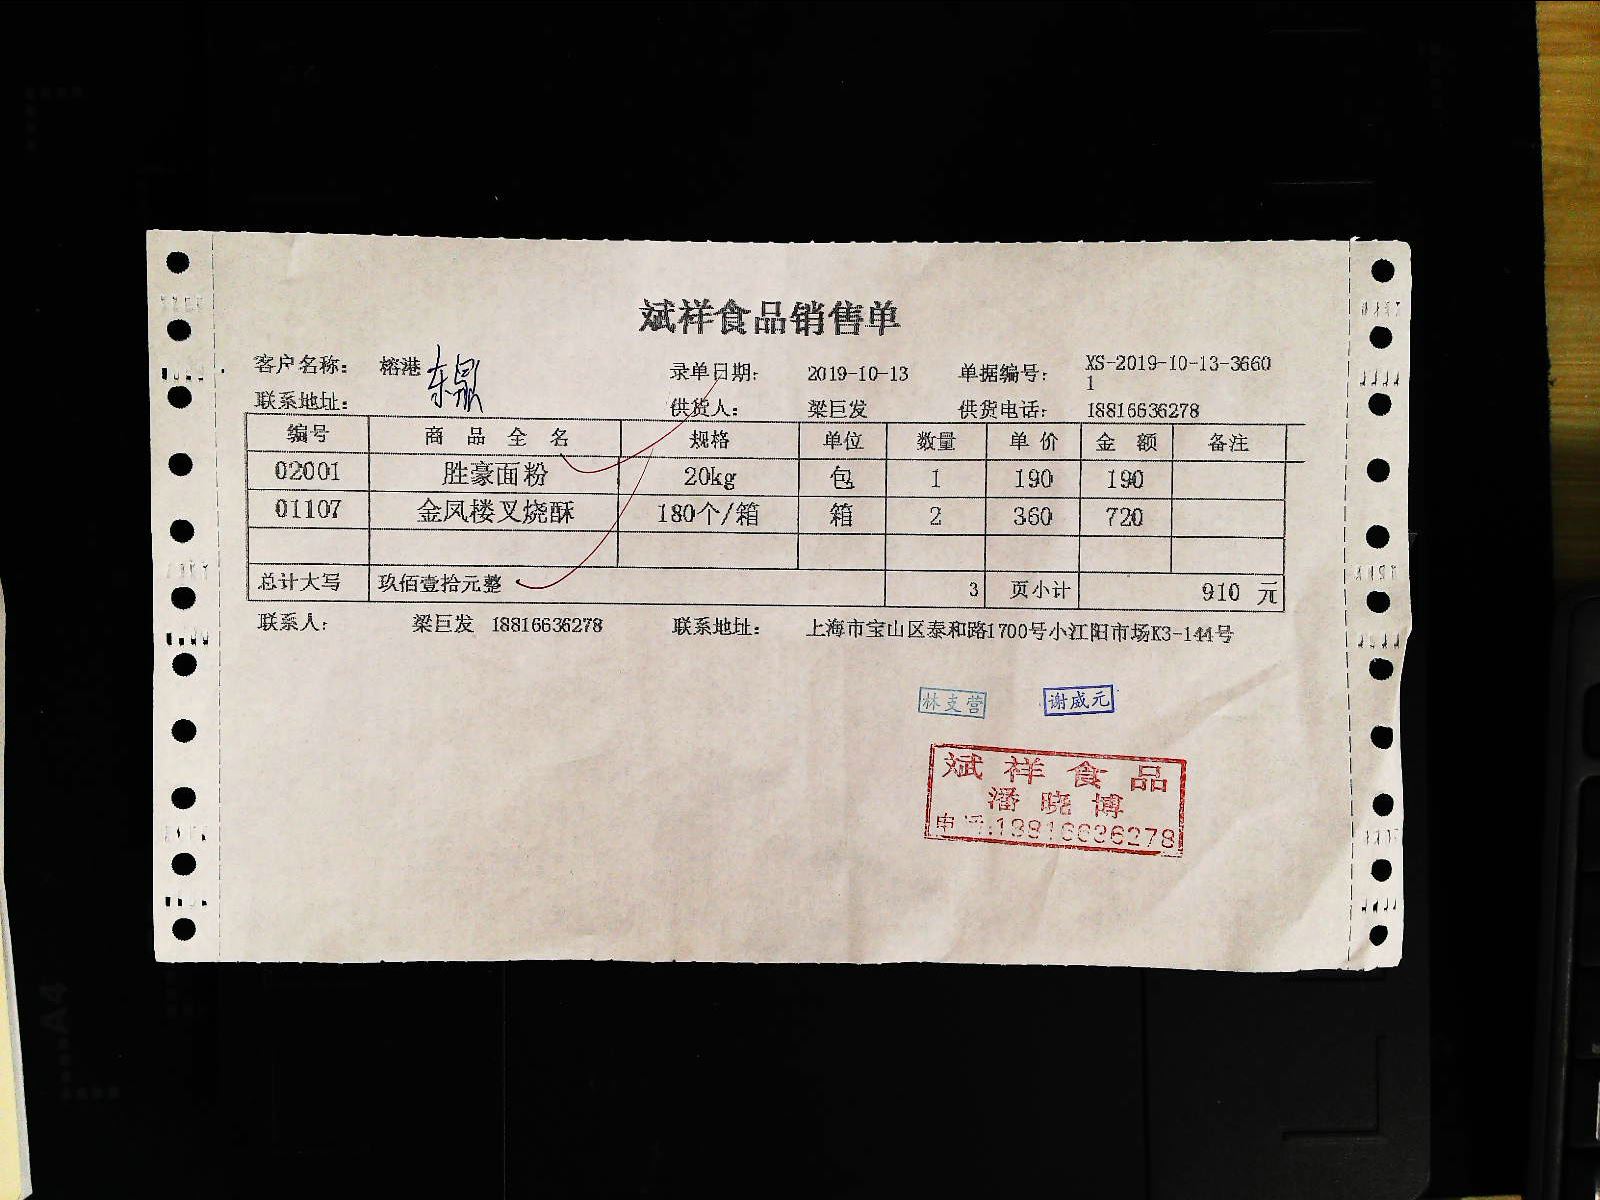 斌祥食品销售单
客户名称： 榕港 东鼎 录单日期： 2019-10-13 单据编号： XS-2019-10-13-3660
1
联系地址： 供货人： 梁巨发 供货电话： 18816636278
编号 商品全名 规格 单位 数量 单价 金额 备注
02001 胜豪面粉 20kg 包 1 190 190
01107 金凤楼叉烧酥 180个/箱 箱 2 360 720
总计大写 玖佰壹拾元整 3 页小计 910 元
联系人： 梁巨发 18816636278 联系地址： 上海市宝山区泰和路1700号小江阳市场K3-144号
林支营 谢威元
斌祥食品
潘晓博
电话:18816636278